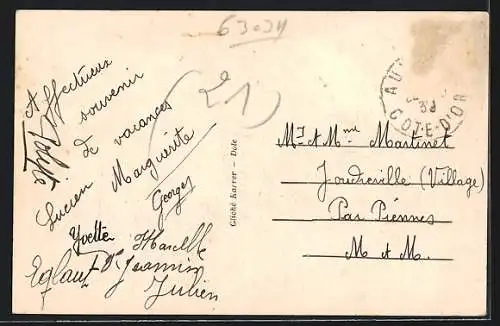 63034
Affectueux
souvenir
de vacances
Lucien Marguerite
Georges
Yvette Marcelle
Jeannin
Julien
(21)
Cliché Karrer - Dole
CÔTE-D'OR
Mr et Mme Martinet
Joudreville (Village)
Par Piennes
M et M.